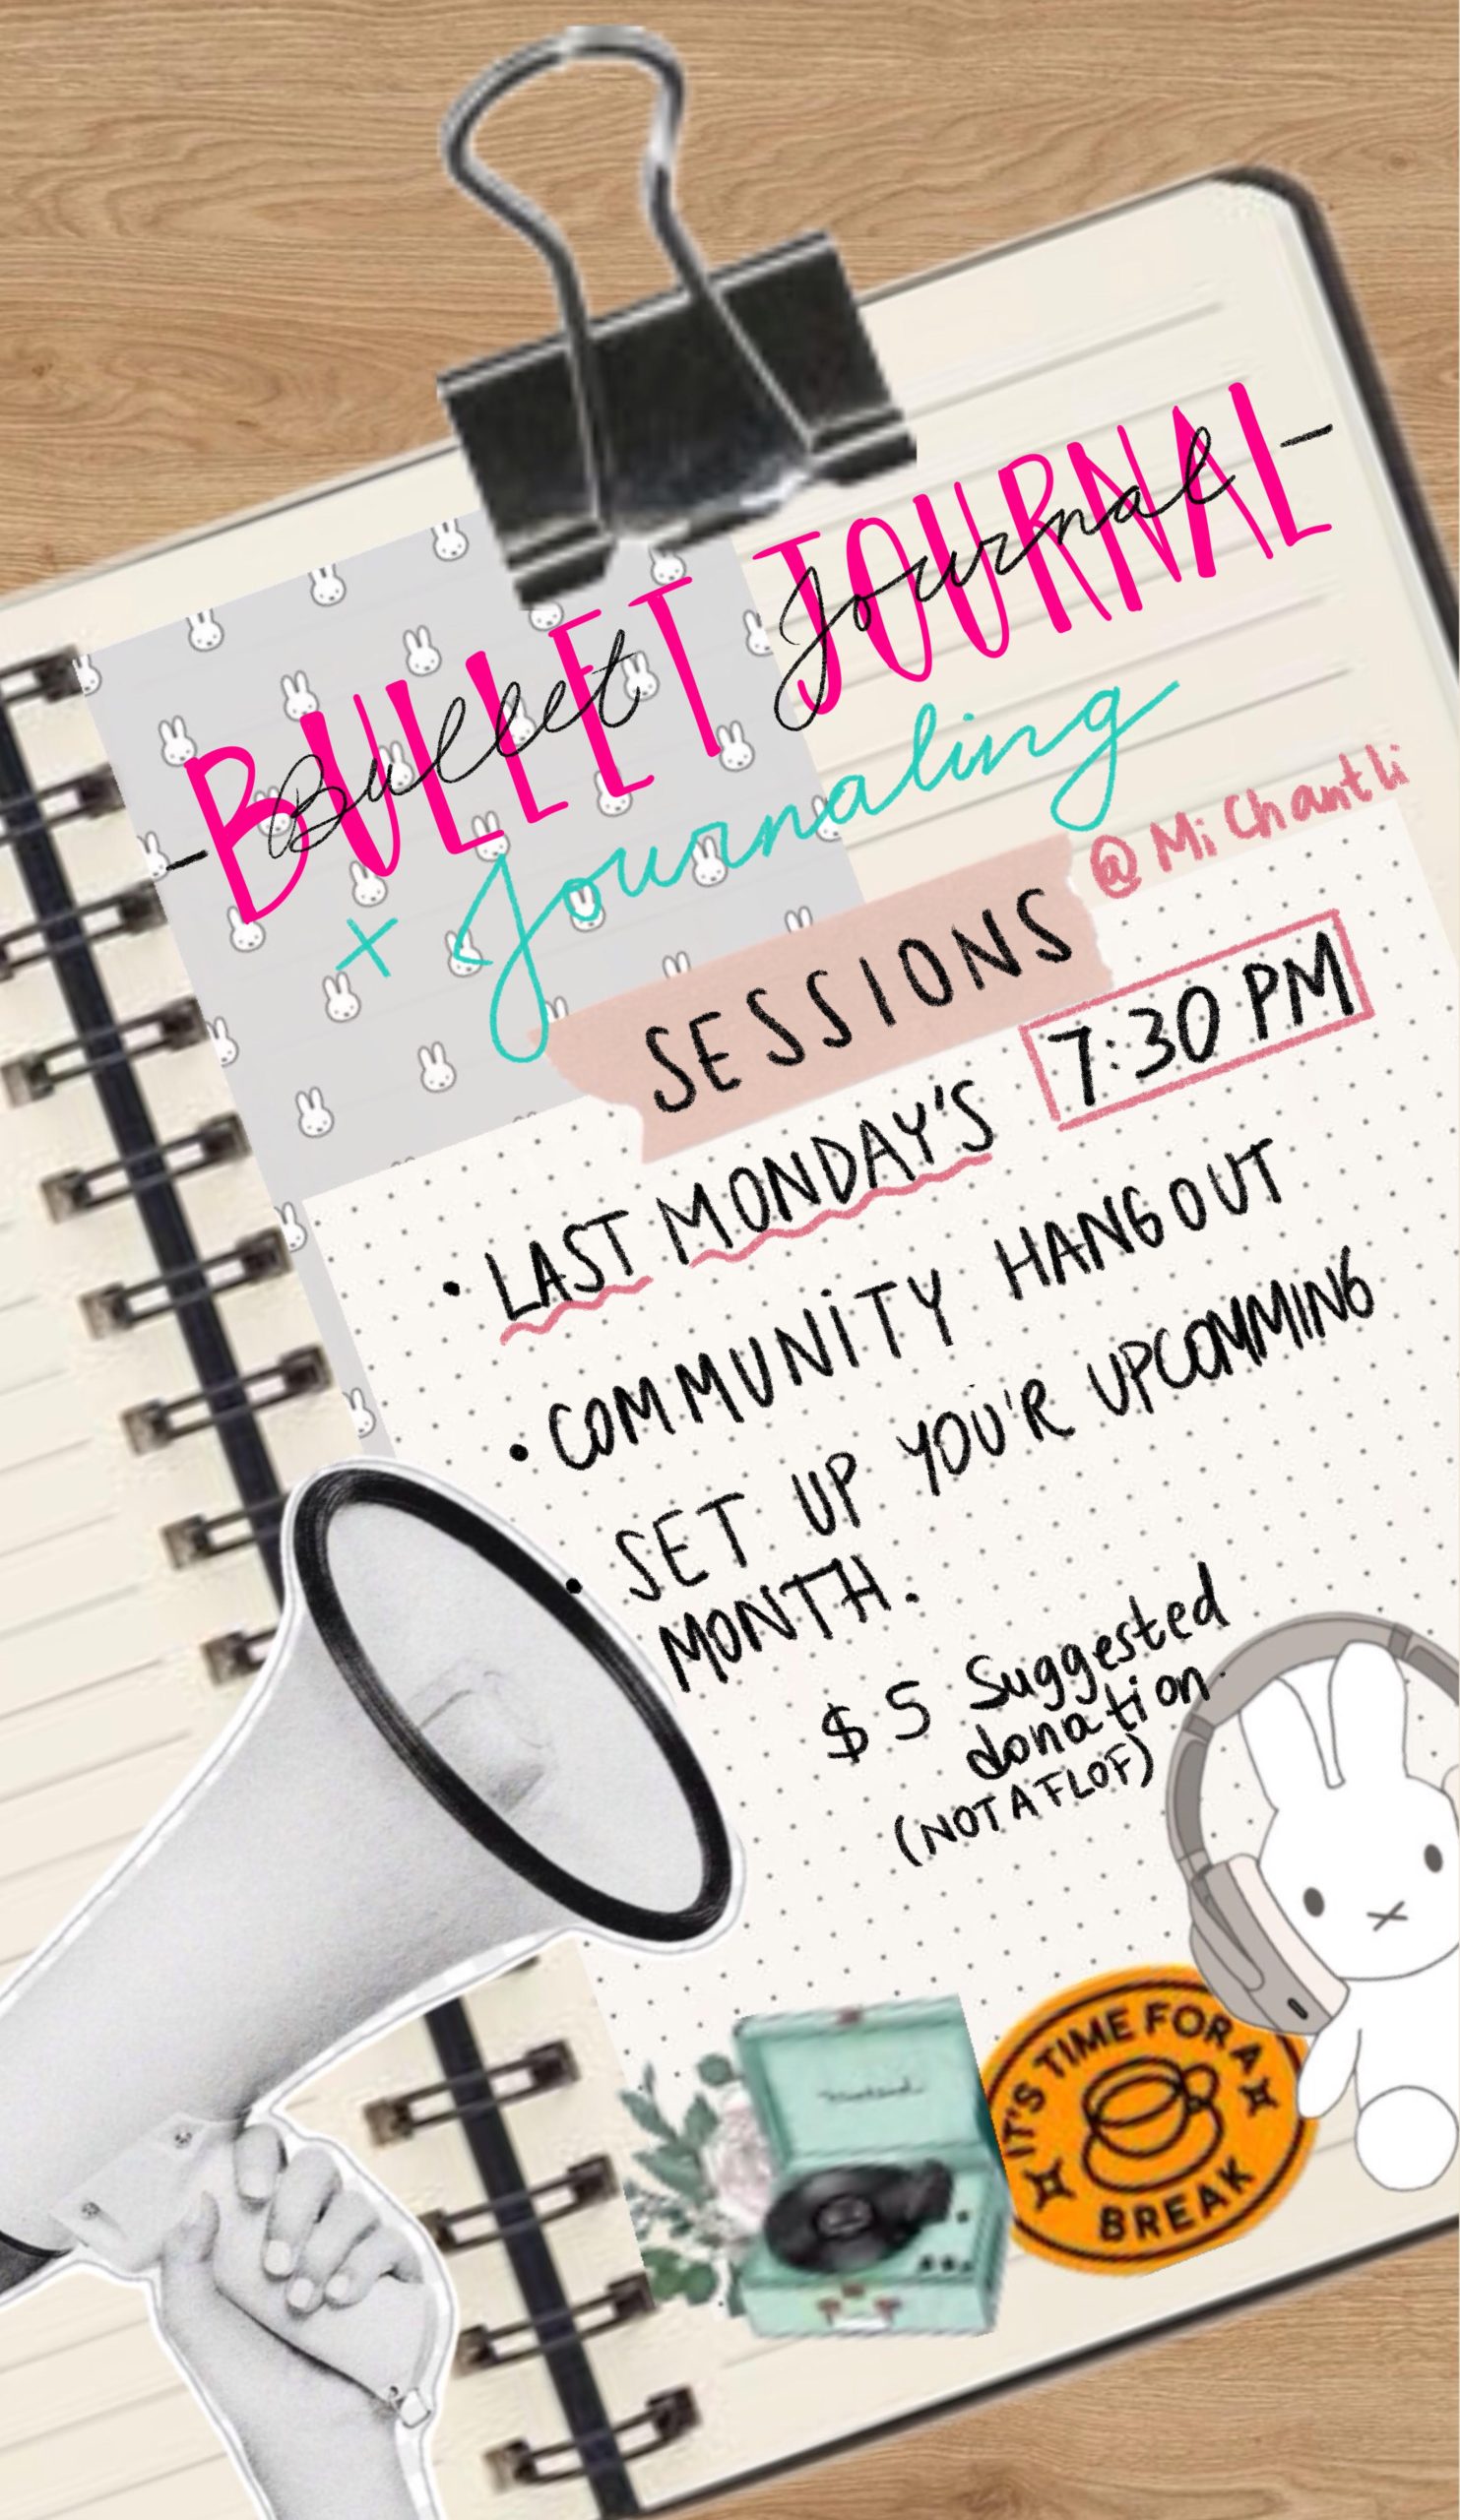 -BULLET JOURNAL-
Bullet Journal
+ Journaling
@MiChantli
SESSIONS
7:30 PM
• LAST MONDAY'S
• COMMUNITY HANGOUT
• SET UP YOU'R UPCOMMING
MONTH.
$5 Suggested
donation
(NOT A FLOF)
IT'S TIME FOR A
BREAK